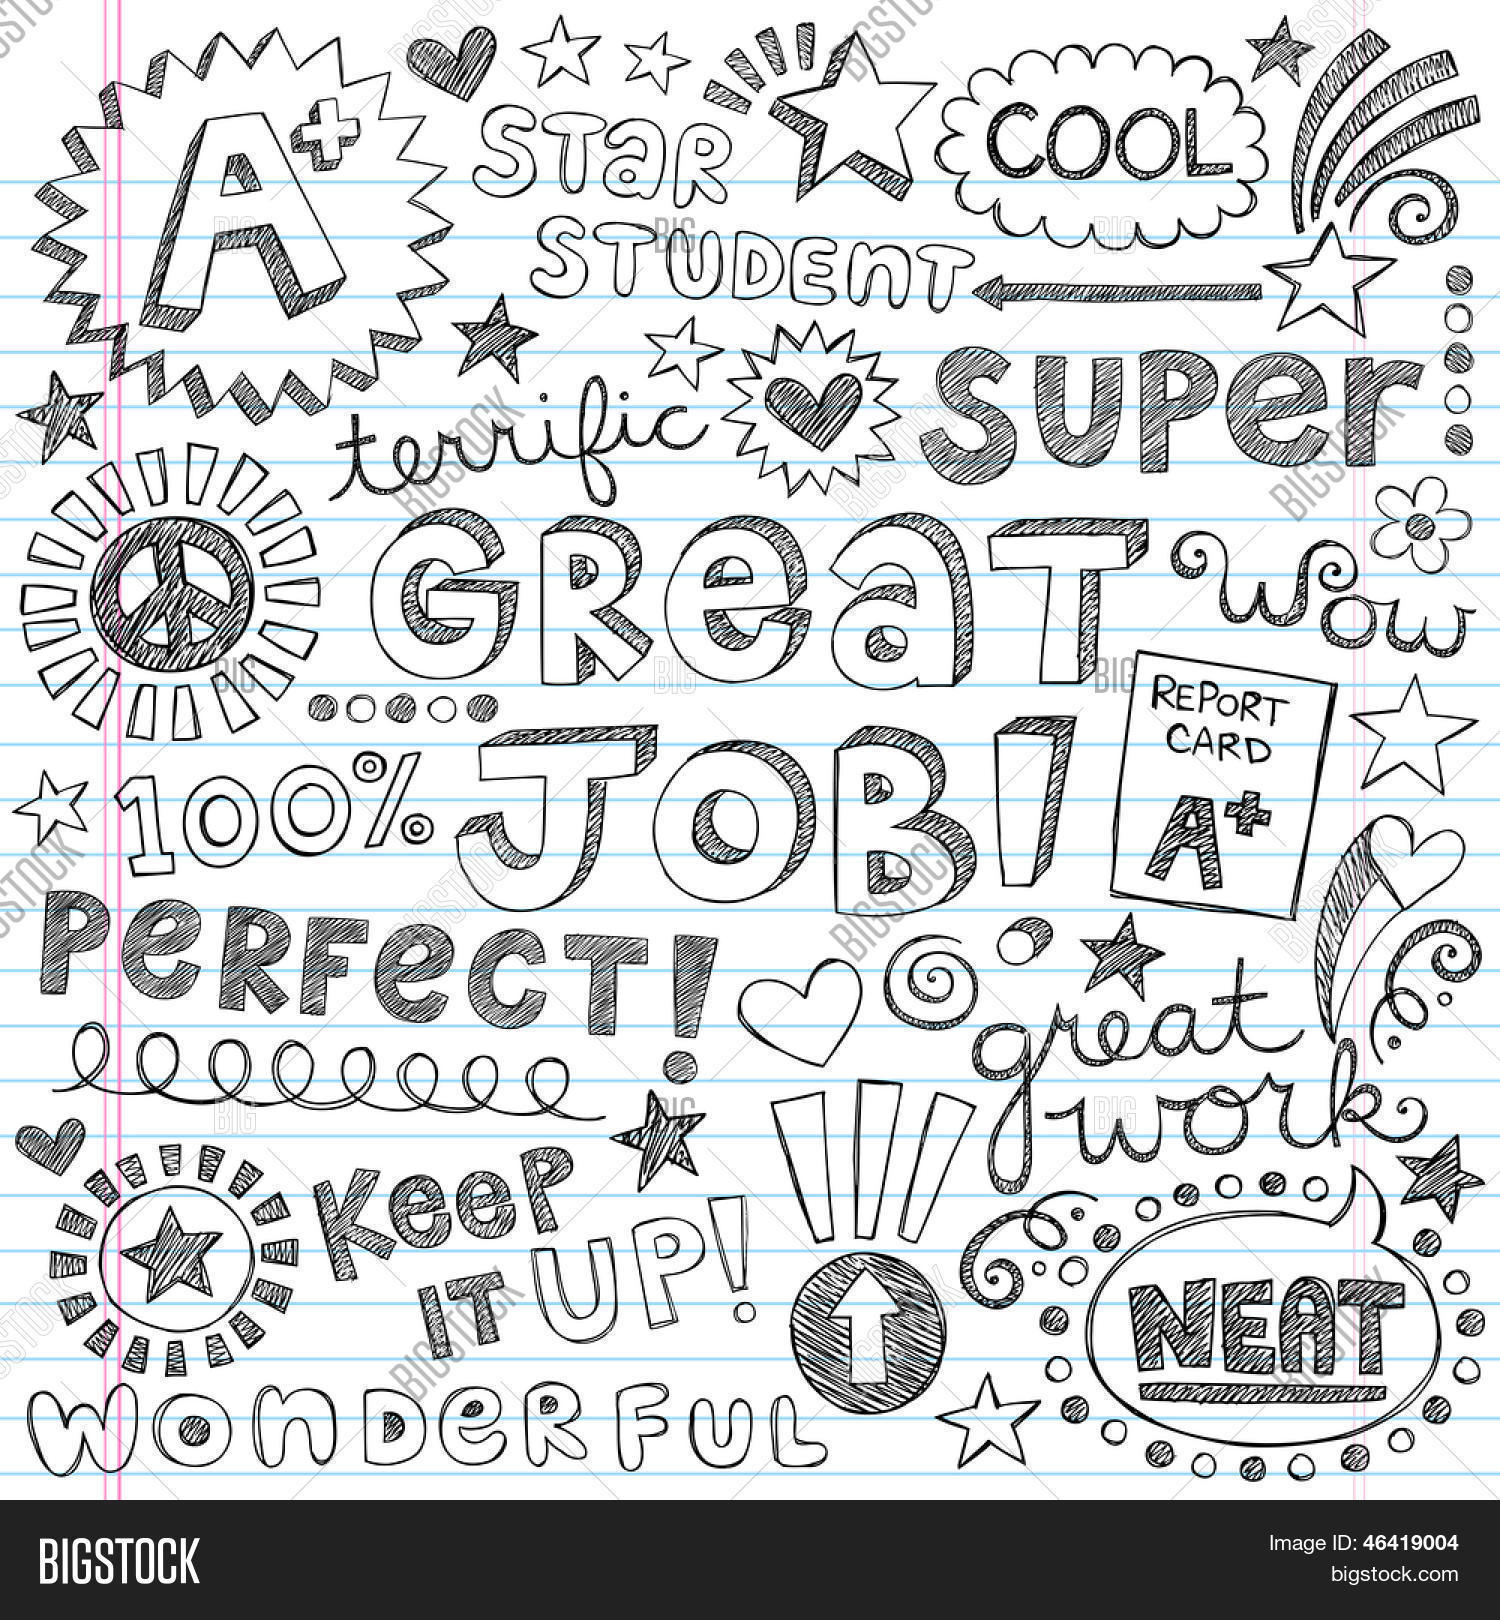 A+
STaR
STUDEnT
COOL
terrific
SUPer
GReaT
JOB!
wow
REPORT
CARD
A+
100%
PeRFeCT!
great
work
KeeP
IT UP!
NEAT
WonDeRFUL
BIGSTOCK
Image ID: 46419004
bigstock.com